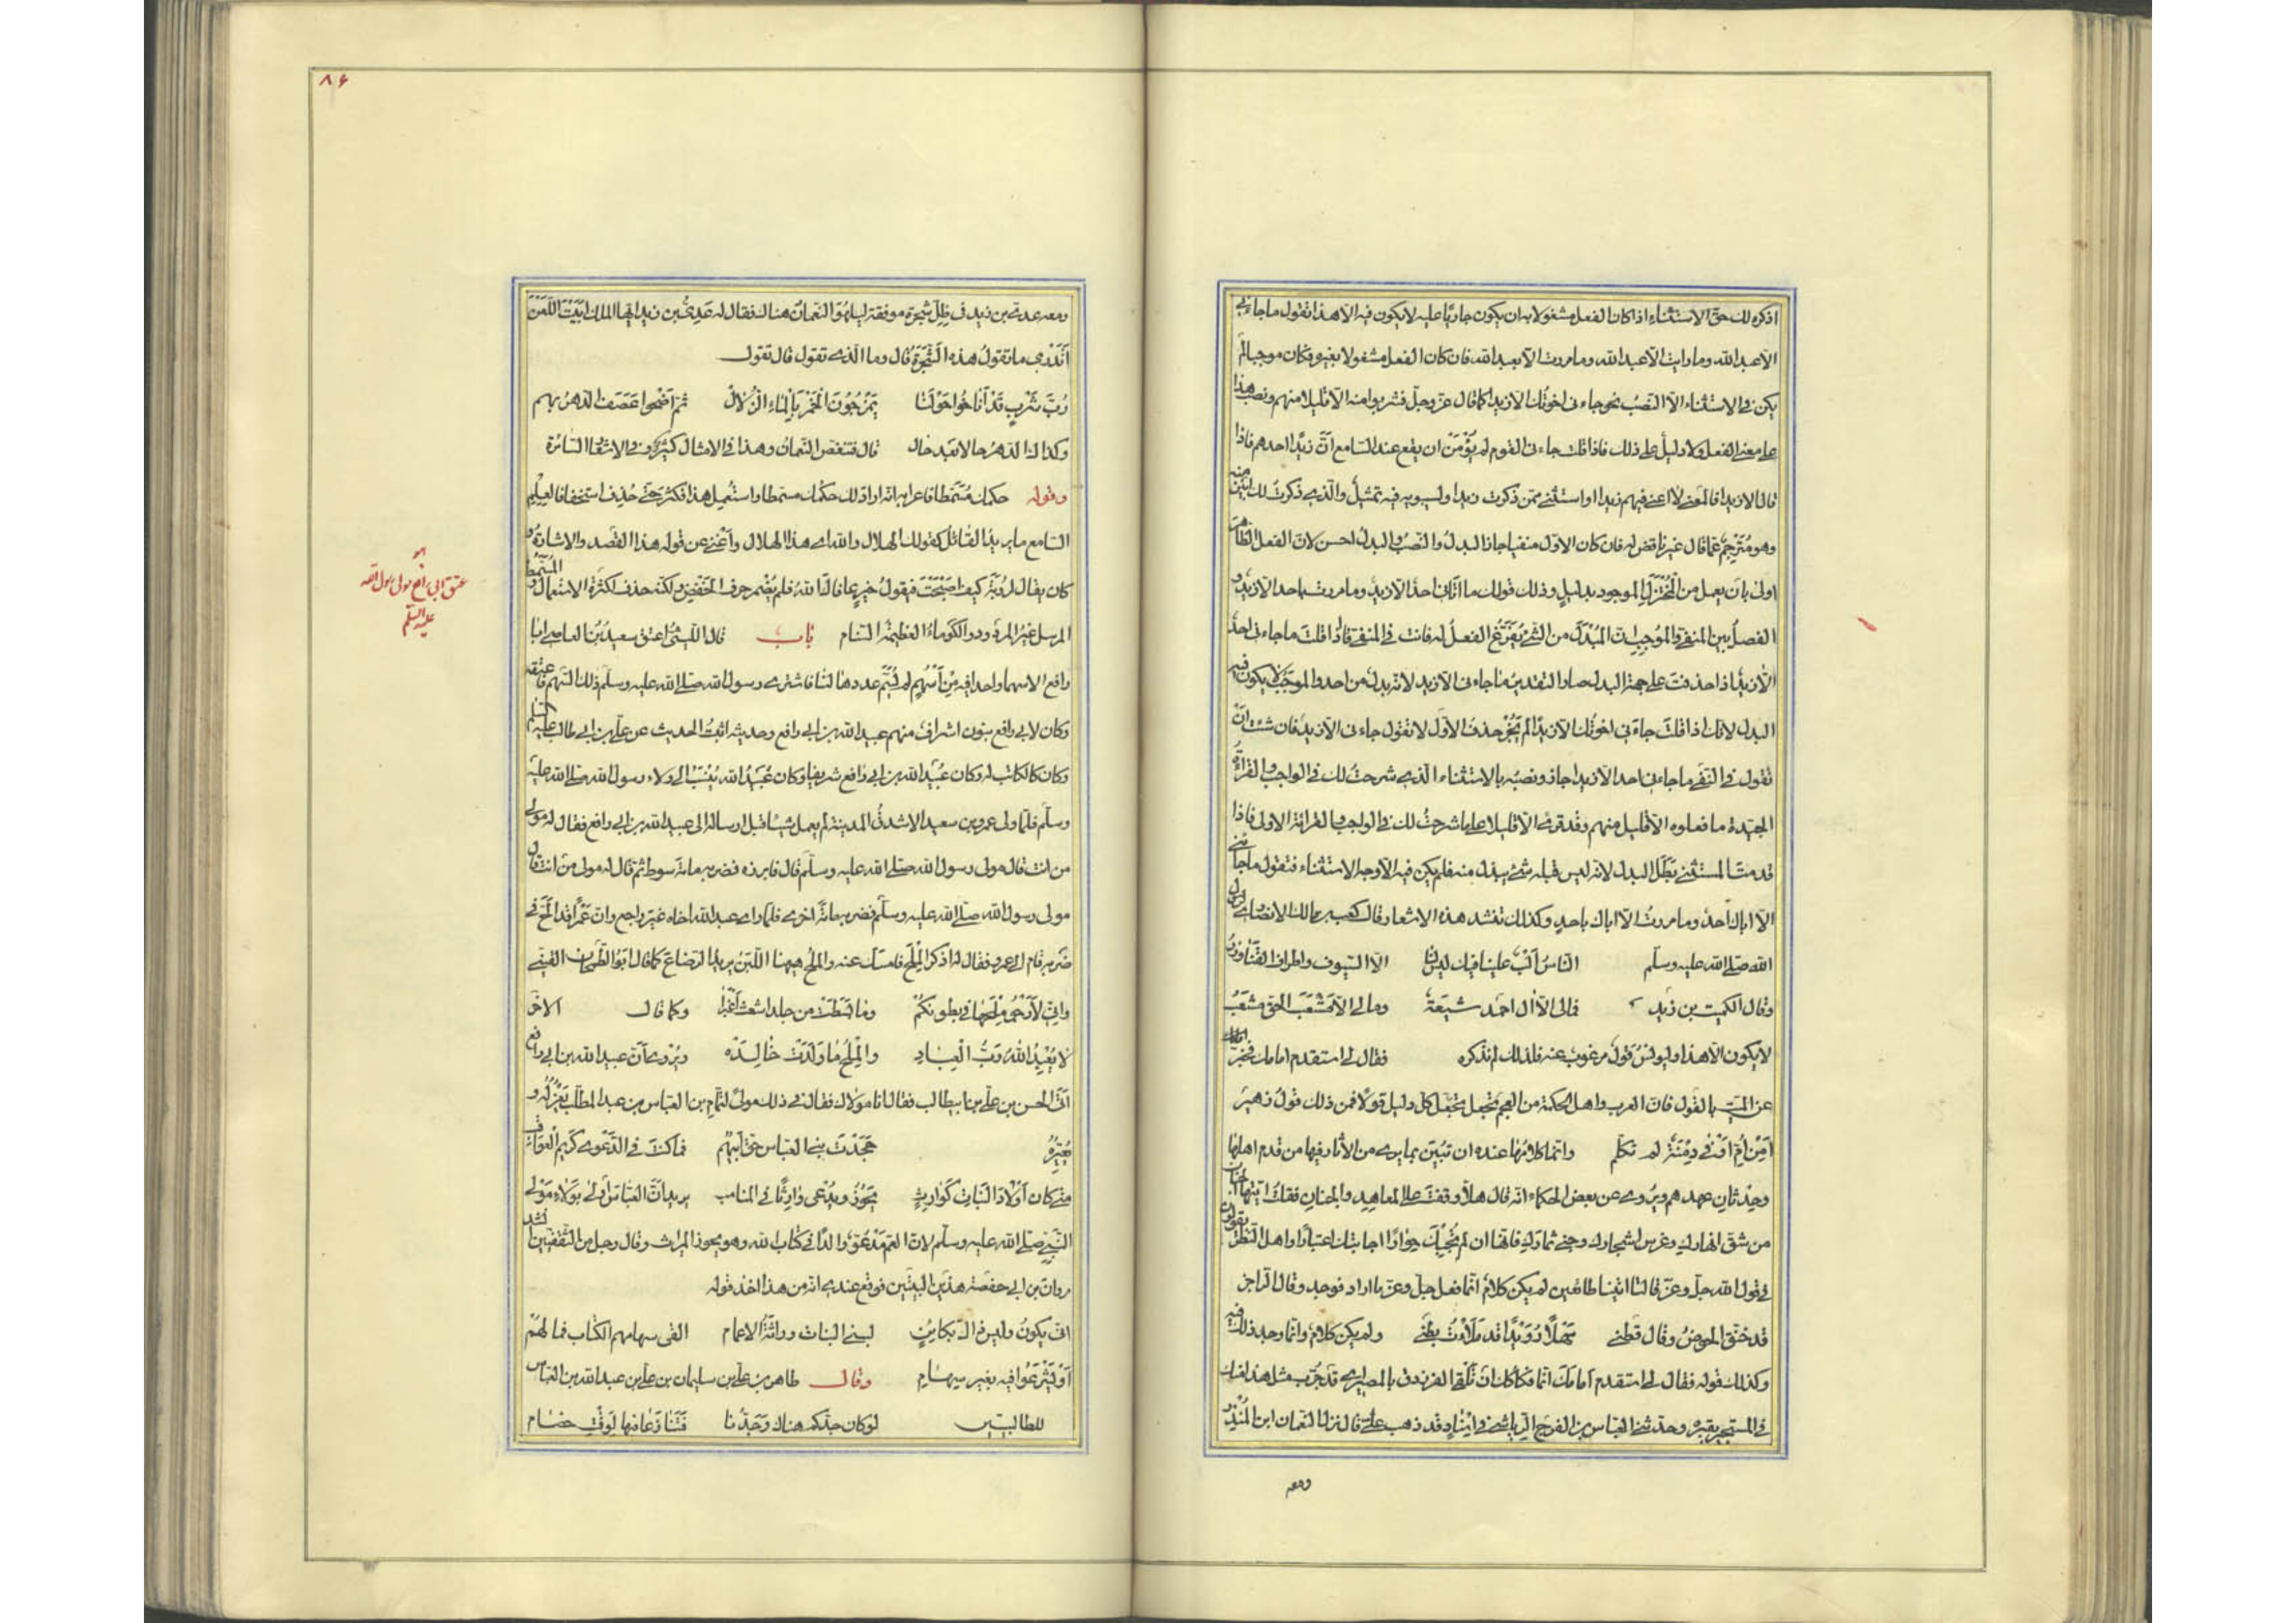 اذكره لك حق الاستثناء اذا كان الفعل مشغولا به ان يكون جاريا عليه لا يكون فيه الا هذا تقول ما جاءني
الا عبد الله وما رايت الا عبد الله وما مررت الا بعبد الله فان كان الفعل مشغولا بغيره فكان موجبا لم
يكن في الاستثناء الا النصب نحو جاءني اخوتك الا زيدا كما قال عز وجل فشربوا منه الا قليلا منهم ونصب هذا
على معنى الفعل والا دليل على ذلك فاذا قلت جاءني القوم لم يؤمن ان يقع عند السامع ان زيدا احدهم فاذا
قال الا زيدا فالمعنى لا اعني فيهم زيدا او استثنى ممن ذكرت زيدا ولسيبويه فيه تمثيل والذي ذكرت لك ابين منه
وهو مترجم عما قال غير ناقض له فان كان الاول منفيا جاز البدل والنصب والبدل احسن لان الفعل الظاهر
اولى بان يعمل من المختزل الموجود بدليل وذلك قولك ما اتاني احد الا زيد وما مررت باحد الا زيد و
الفصل بين المنفي والموجب ان المبدل من الشيء يفرغ الفعل له فانت في المنفي فاذا قلت ما جاءني احد
الا زيد اذا حذفت على جهة البدل صار التقدير ما جاءني الا زيد لانه بدل من احد والموجب لا يكون فيه
البدل لانك اذا قلت جاءني اخوتك الا زيدا لم يجز حذف الاول لا تقول جاءني الا زيد فان شئت ان
تقول في النفي ما جاءني احد الا زيدا جاز ونصبه بالاستثناء الذي شرحت لك في الواجب والقراءة
الجيدة ما فعلوه الا قليل منهم وقد قرئ الا قليلا على ما شرحت لك في الواجب والقرائة الاولى فاذا
قدمت المستثنى بطل البدل لانه ليس قبله شيء يبدل منه فلم يكن فيه الا وجه الاستثناء فتقول ما جاءني
الا اباك احد وما مررت الا اباك باحد وكذلك تنشد هذه الاشعار قال كعب بن مالك الانصاري لرسول
الله صلى الله عليه وسلم الناس الب علينا فيك ليس لنا الا السيوف واطراف القنا وزر
وقال الكميت بن زيد فمالي الا آل احمد شيعة ومالي الا مشعب الحق مشعب
لا يكون الا هذا وليونس قول مرغوب عنه فلذلك لم نذكره فقال لي استقدم امامك فخبر
عن الميت بالقول فان العرب واهل الحكمة من العجم تجعل كل دليل قولا فمن ذلك قول زهير
أمن أم أوفى دمنة لم تكلم وانما كلامها عنده ان تبين بما يرى من الآثار فيها من قدم اهلها
وحدثان عهدهم ويروى عن بعض الحكماء انه قال هلا وقفت على المعاهد والجنان فقلت ايتها الجنان
من شق انهارك وغرس اشجارك وجنى ثمارك فانها ان لم تجبك حوارا اجابتك اعتبارا واهل النظر يقولون
في قول الله جل وعز قالتا اتينا طائعين لم يكن كلام انما فعل جل وعز ما اراد فوجد وقال الراجز
قد خنق الحوض وقال قطني مهلا رويدا قد ملأت بطني ولم يكن كلام وانما وجد ذلك فيه
وكذلك قوله فقال لي استقدم امامك انما فكاكك ان تلقى الفرزدق بالمصر اي قد جرب مثل هذا منك
في المستجير بقبره وحدثني العباس بن الفرج الرياشي في اسناد قد ذهب عني قال نزل النعمان ابن المنذر
ومعه
٨۶
ومعه عدي بن زيد في ظل شجرة مونقة ليلهو النعمان هناك فقال له عدي بن زيد ايها الملك ابيت اللعن
أتدري ما تقول هذه الشجرة قال وما الذي تقول قال تقول
رب شرب قد أناخوا حولنا يمزجون الخمر بالماء الزلال ثم أضحوا عصف الدهر بهم
وكذاك الدهر حالا بعد حال قال فتنغص النعمان وهذا في الامثال كثير وفي الاشعار السائرة
وقوله حكمك مسمطا فاعرابه انه اراد لك حكمك مسمطا واستعمل هذا فكثر حتى حذف استخفافا لعلم
السامع ما يريد القائل كقولك الهلال والله اي هذا الهلال واغنى عن قوله هذا القصد والاشارة و
كان يقال لرؤبة كيف اصبحت فيقول خير عافاك الله فلم يضمر حرف الخفض ولكنه حذف لكثرة الاستعمال والمسمط
المرسل غير المردود والكوماء العظيمة السنام باب قال الليثي اعتق سعيد بن العاصي ابا
رافع الا سهما واحدا فيه من أسهم لم يسم عددها لنا فاشترى رسول الله صلى الله عليه وسلم ذلك السهم فاعتقه
وكان لابي رافع بنون اشراف منهم عبيد الله بن ابي رافع وحديثه اثبت الحديث عن علي بن ابي طالب عليه السلام
وكان كالكاتب له وكان عبيد الله بن ابي رافع شريفا وكان عبيد الله ينسب الى ولاء رسول الله صلى الله عليه
وسلم فلما ولى عمرو بن سعيد الاشدق المدينة لم يعمل شيئا قبل ارساله الى عبيد الله بن ابي رافع فقال له مولى
من انت قال مولى رسول الله صلى الله عليه وسلم قال فابرزه فضربه مائة سوط ثم قال له مولى من انت قال
مولى رسول الله صلى الله عليه وسلم فضربه مائة اخرى فلما راى عبد الله اخاه غير راجع وان عمرا قد الح في
ضربه قام الى عمرو فقال له اذكر الملح فامسك عنه والملح هيهنا اللبن يريد الرضاع كما قال ابو الطمحان القيني
واني لأرجو ملحها في بطونكم وما بسطت من جلد اشعث أغبرا وكما قال الآخر
لا يبعد الله رب العباد والملح ما ولدت خالده ويروى ان عبيد الله بن ابي رافع
اتى الحسن بن علي بن ابيطالب فقال انا مولاك فقال في ذلك مولى لتمام بن العباس بن عبد المطلب يعذله و
يعيره جحدت بني العباس حق أبيهم فما كنت في الدعوى كريم العواقب
متى كان أولاد البنات كوارث يحوز ويدعى والدا في المناسب يريد أن العباس أولى بولاء مولى
النبي صلى الله عليه وسلم لان العم مدعو والدا في كتاب الله وهو يحوز الميراث وقال رجل من الثقفيين انشد
مروان بن ابي حفصة هذين البيتين فوقع عندي انه من هذا اخذ قوله
انى يكون وليس ذاك بكائن لبني البنات وراثة الاعمام القى سهامهم الكتاب فما لهم
أن يشرعوا فيه بغير سهام وقال طاهر بن علي بن سليمان بن علي بن عبد الله بن العباس
للطالبيين لو كان جدكم هناك وجدنا فتنازعا فيها لوقت خصام
عتق ابي رافع مولى رسول الله
عليه السلام